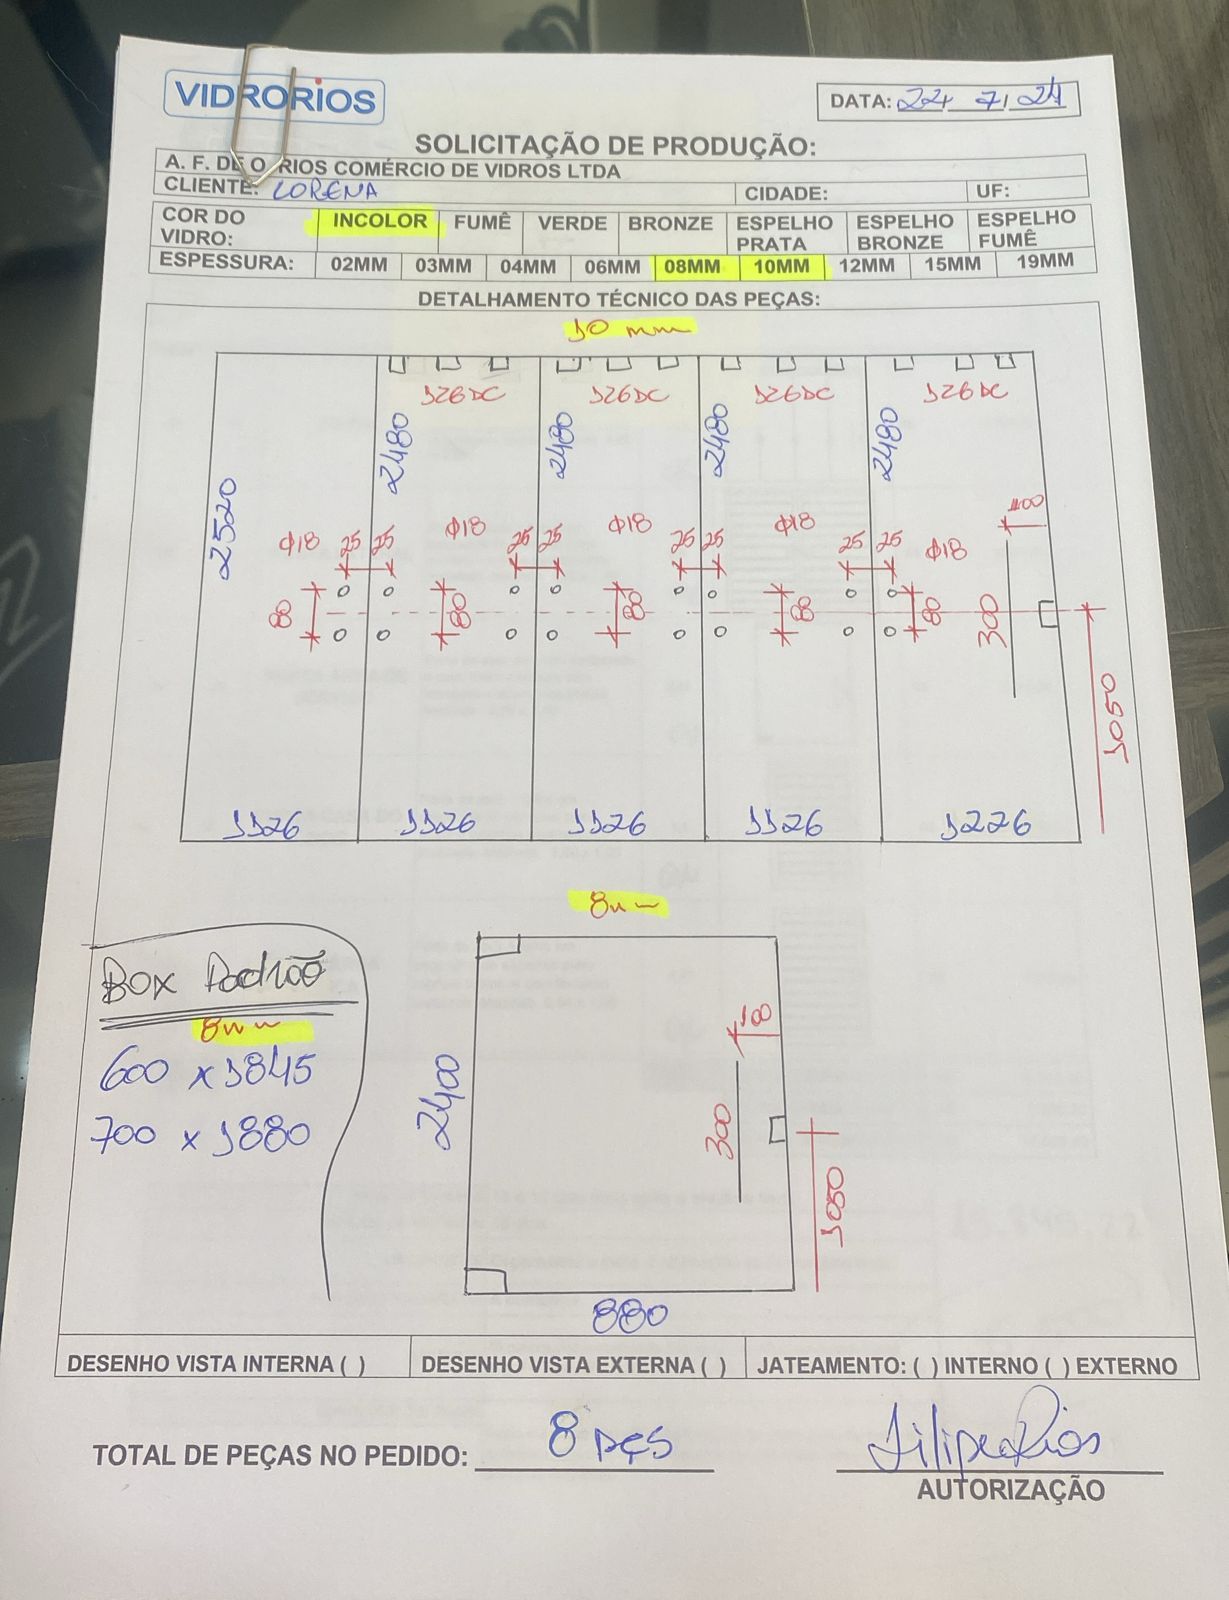 VIDRORIOS
DATA: 22/ 7/ 24
SOLICITAÇÃO DE PRODUÇÃO:
A. F. DE O. RIOS COMÉRCIO DE VIDROS LTDA
CLIENTE: LORENA CIDADE: UF:
COR DO VIDRO: INCOLOR FUMÊ VERDE BRONZE ESPELHO PRATA ESPELHO BRONZE ESPELHO FUMÊ
ESPESSURA: 02MM 03MM 04MM 06MM 08MM 10MM 12MM 15MM 19MM
DETALHAMENTO TÉCNICO DAS PEÇAS:
10 mm
126DC 126DC 126DC 126DC
2520 2480 2480 2480 2480
100
Φ18 25 25 Φ18 25 25 Φ18 25 25 Φ18 25 25 Φ18
80 80 80 80 80 300
1050
1126 1126 1126 1126 1226
8mm
Box Padrão
8mm
600 x 1845
700 x 1880
100
2400
300
1050
880
DESENHO VISTA INTERNA ( ) DESENHO VISTA EXTERNA ( ) JATEAMENTO: ( ) INTERNO ( ) EXTERNO
TOTAL DE PEÇAS NO PEDIDO: 8 pçs
Filipe Rios
AUTORIZAÇÃO